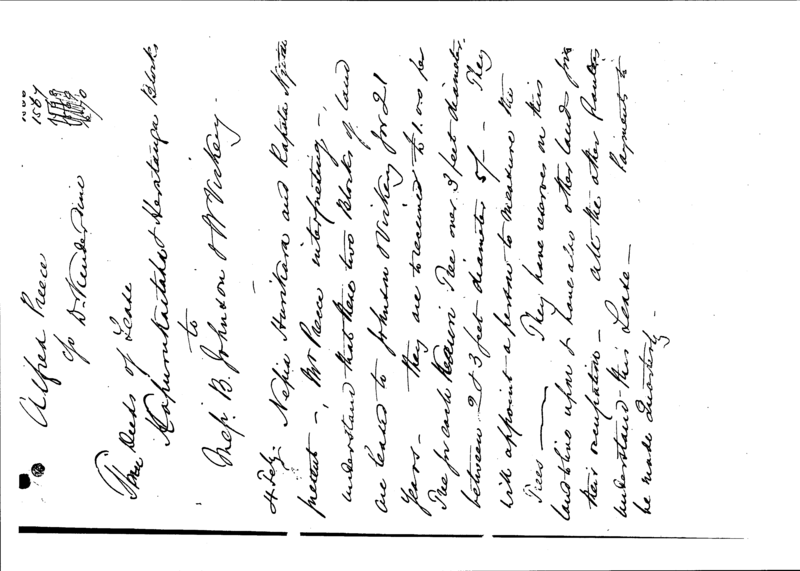 1587
Alfred Preece
c/o Dr
Deeds of Lease
Blocks
to
Mess. B. Johnson & W Vickery.
4 July. Nepia Hurikara and Rapata
present -, Mr Preece interpreting -,
understand that these two Blocks of land
are leased to Johnson & Vickery for 21
years - they are to receive
Tree for each Kauri Tree over 3 feet diameter.
between 2 & 3 feet diameter 5/- They
will appoint a person to measure the
Trees — They have reserves on this
land to live upon & have also other land for
their occupation - all the other
understand this Lease - Payments to
be made Quarterly -